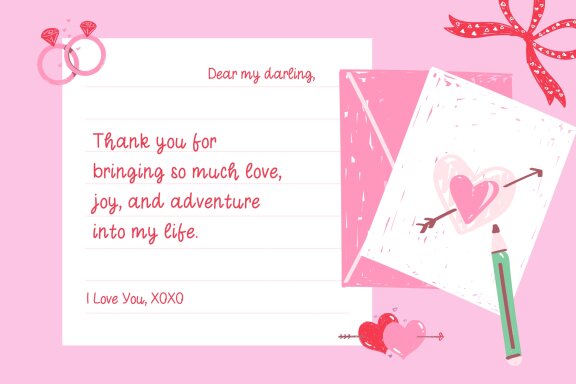 Dear my darling,
Thank you for
bringing so much love,
joy, and adventure
into my life.
I Love You, XOXO